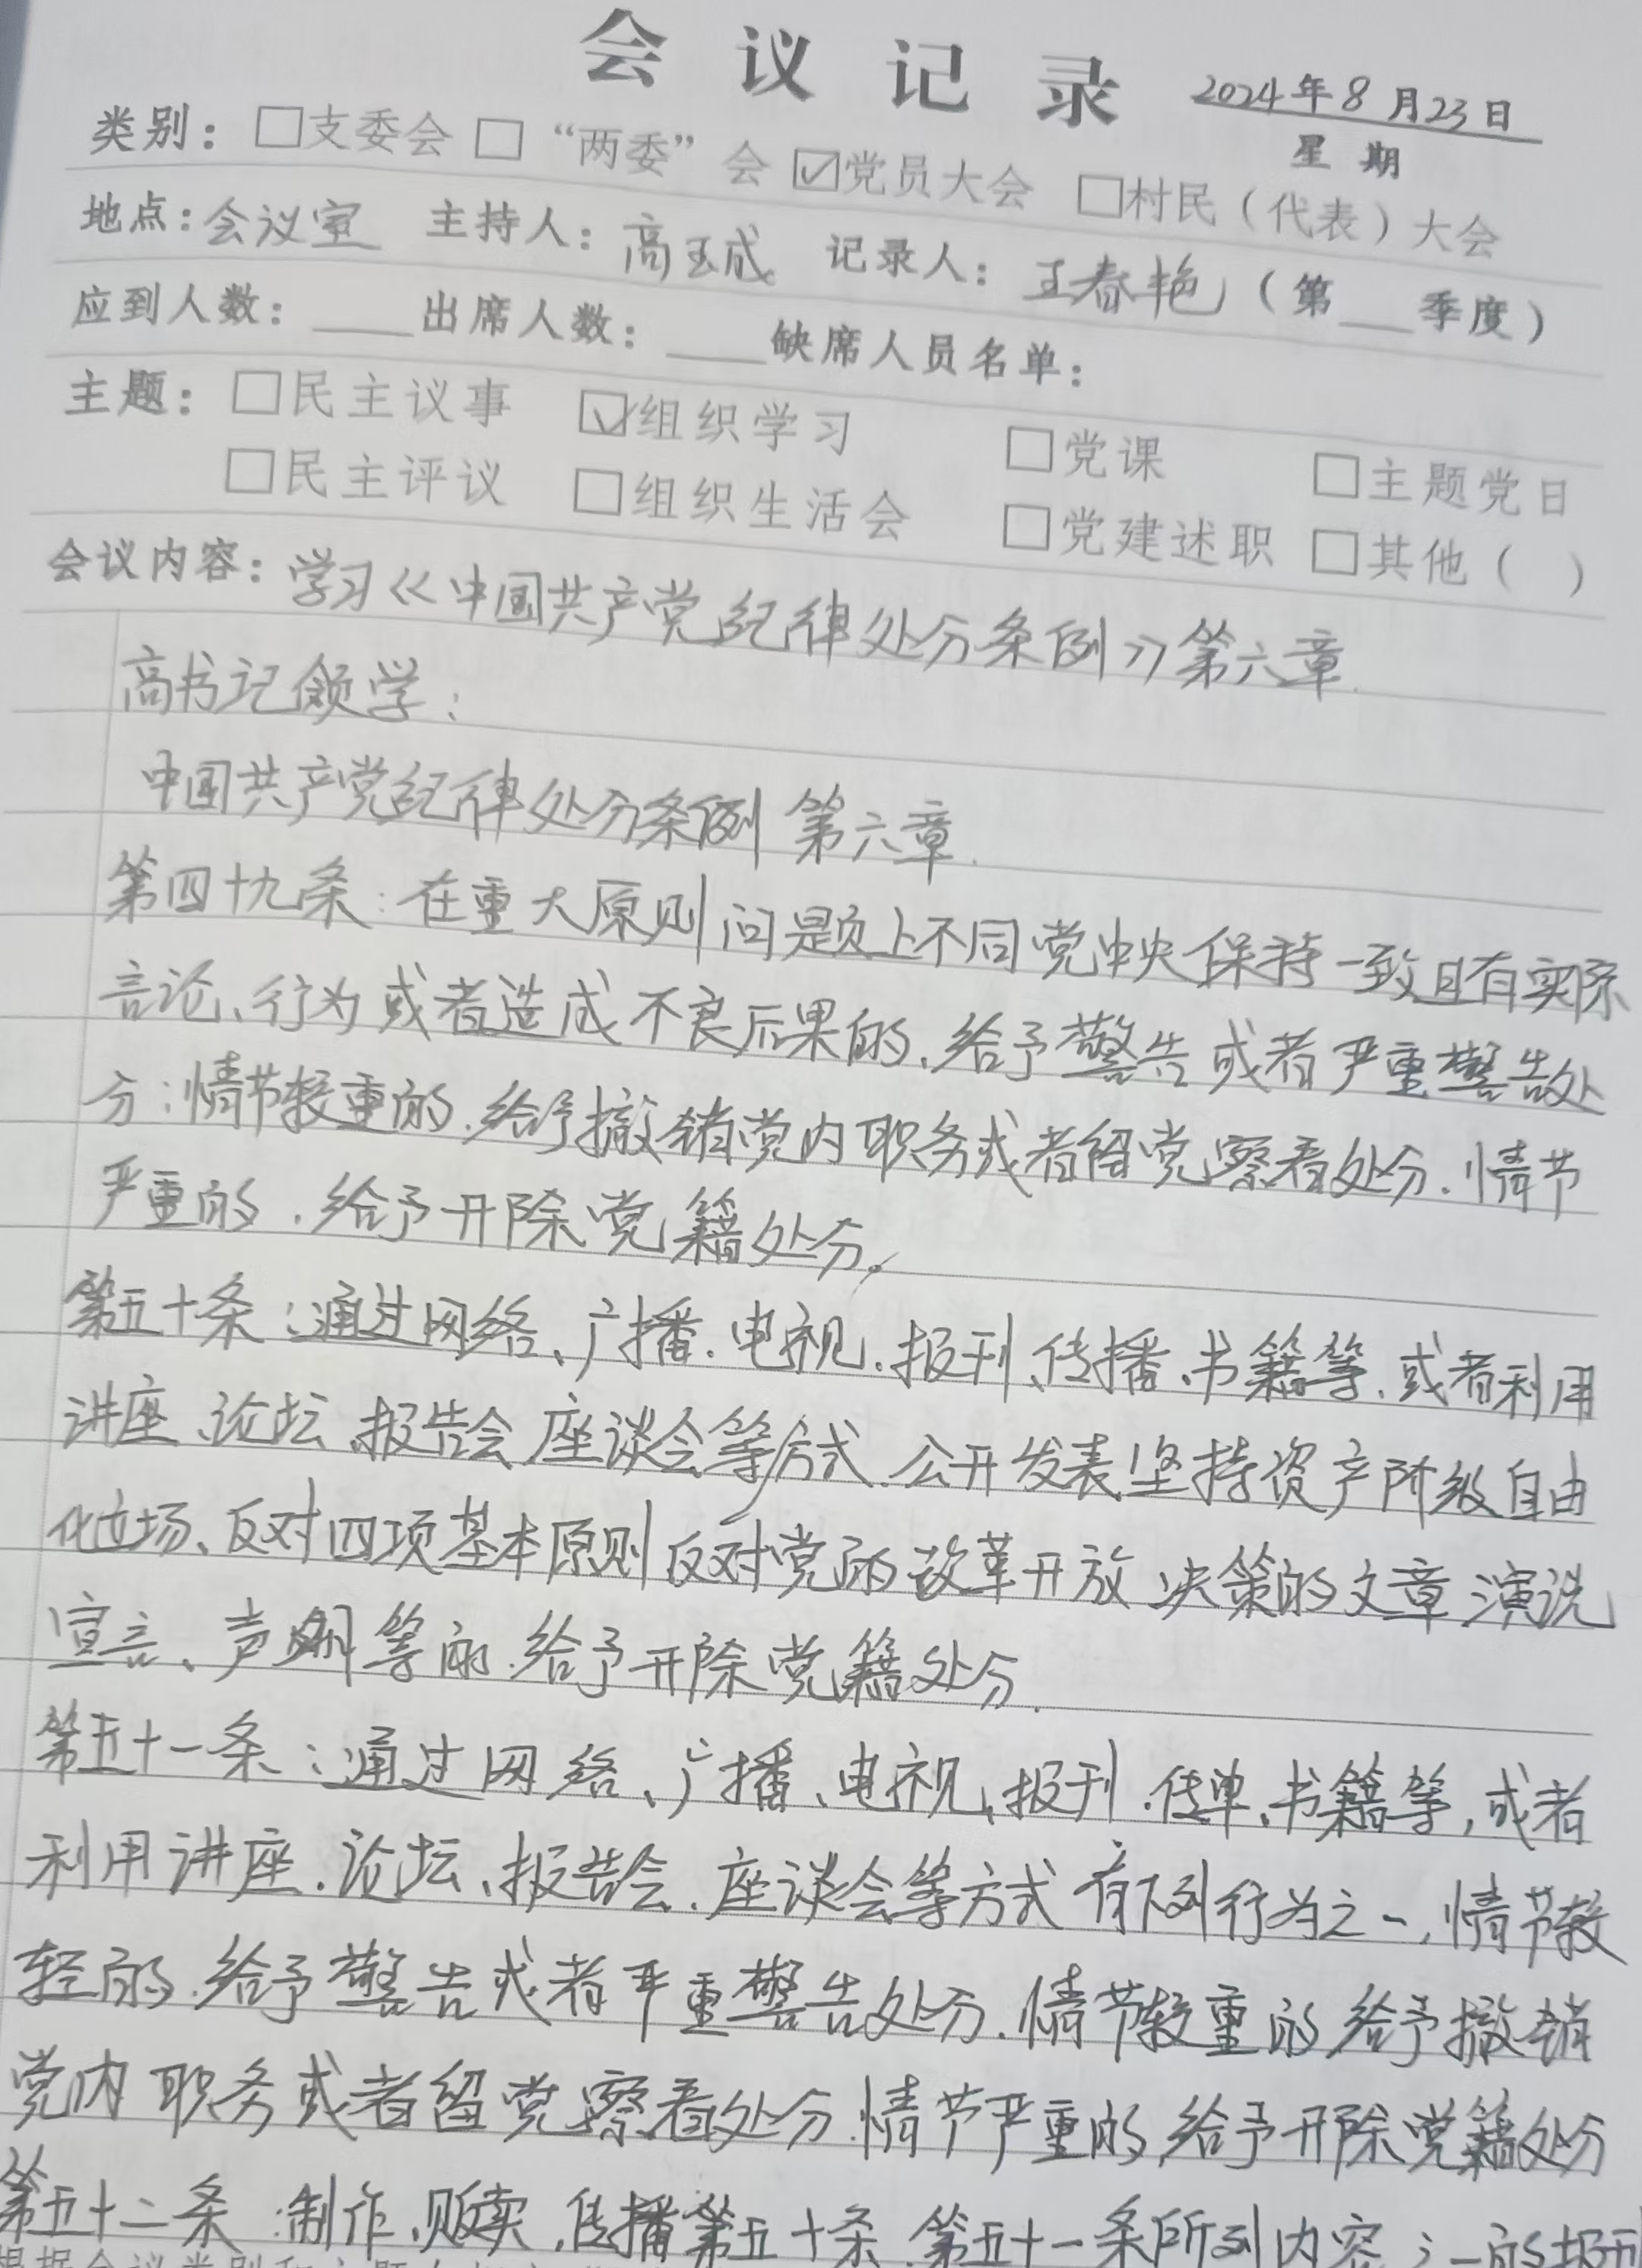 会议记录 2024年8月23日
星期
类别：□支委会 □“两委”会 ☑党员大会 □村民（代表）大会
地点：会议室 主持人：高玉成 记录人：王春艳（第___季度）
应到人数：____出席人数：____缺席人员名单：
主题：□民主议事 ☑组织学习 □党课 □主题党日
□民主评议 □组织生活会 □党建述职 □其他（ ）
会议内容：学习《中国共产党纪律处分条例》第六章.
高书记领学：
中国共产党纪律处分条例 第六章.
第四十九条：在重大原则问题上不同党中央保持一致且有实际
言论、行为或者造成不良后果的、给予警告或者严重警告处
分；情节较重的.给予撤销党内职务或者留党察看处分.情节
严重的.给予开除党籍处分。
第五十条：通过网络、广播.电视.报刊、传播、书籍等.或者利用
讲座、论坛、报告会 座谈会等方式.公开发表坚持资产阶级自由
化立场、反对四项基本原则 反对党的改革开放 决策的文章 演说
宣言、声明等的.给予开除党籍处分.
第五十一条：通过网络、广播、电视、报刊.传单、书籍等,或者
利用讲座.论坛、报告会.座谈会等方式 有下列行为之一,情节较
轻的.给予警告或者严重警告处分.情节较重的 给予撤销
党内职务或者留党察看处分.情节严重的 给予开除党籍处分
第五十二条：制作、贩卖,传播第五十条.第五十一条所列内容之一的报刊